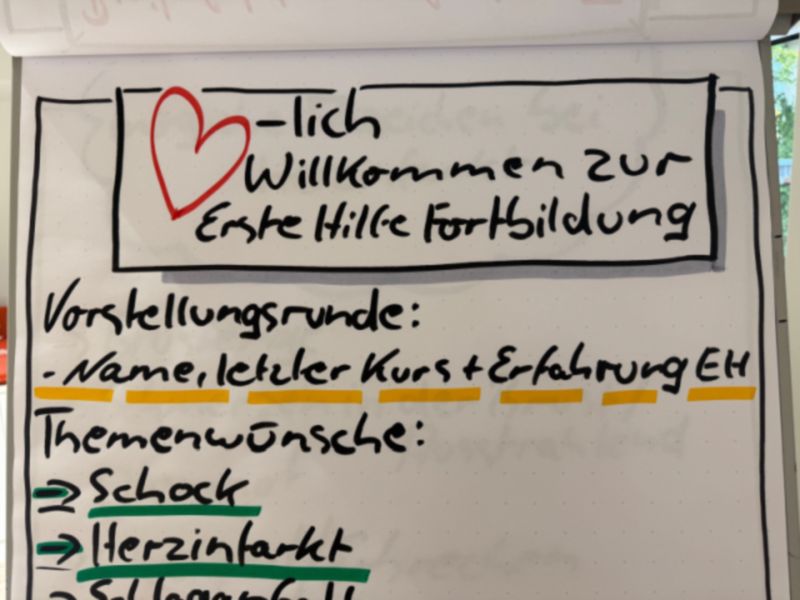 -lich
Willkommen zur
Erste Hilfe Fortbildung
Vorstellungsrunde:
- Name, letzter Kurs + Erfahrung EH
Themenwünsche:
→ Schock
→ Herzinfarkt